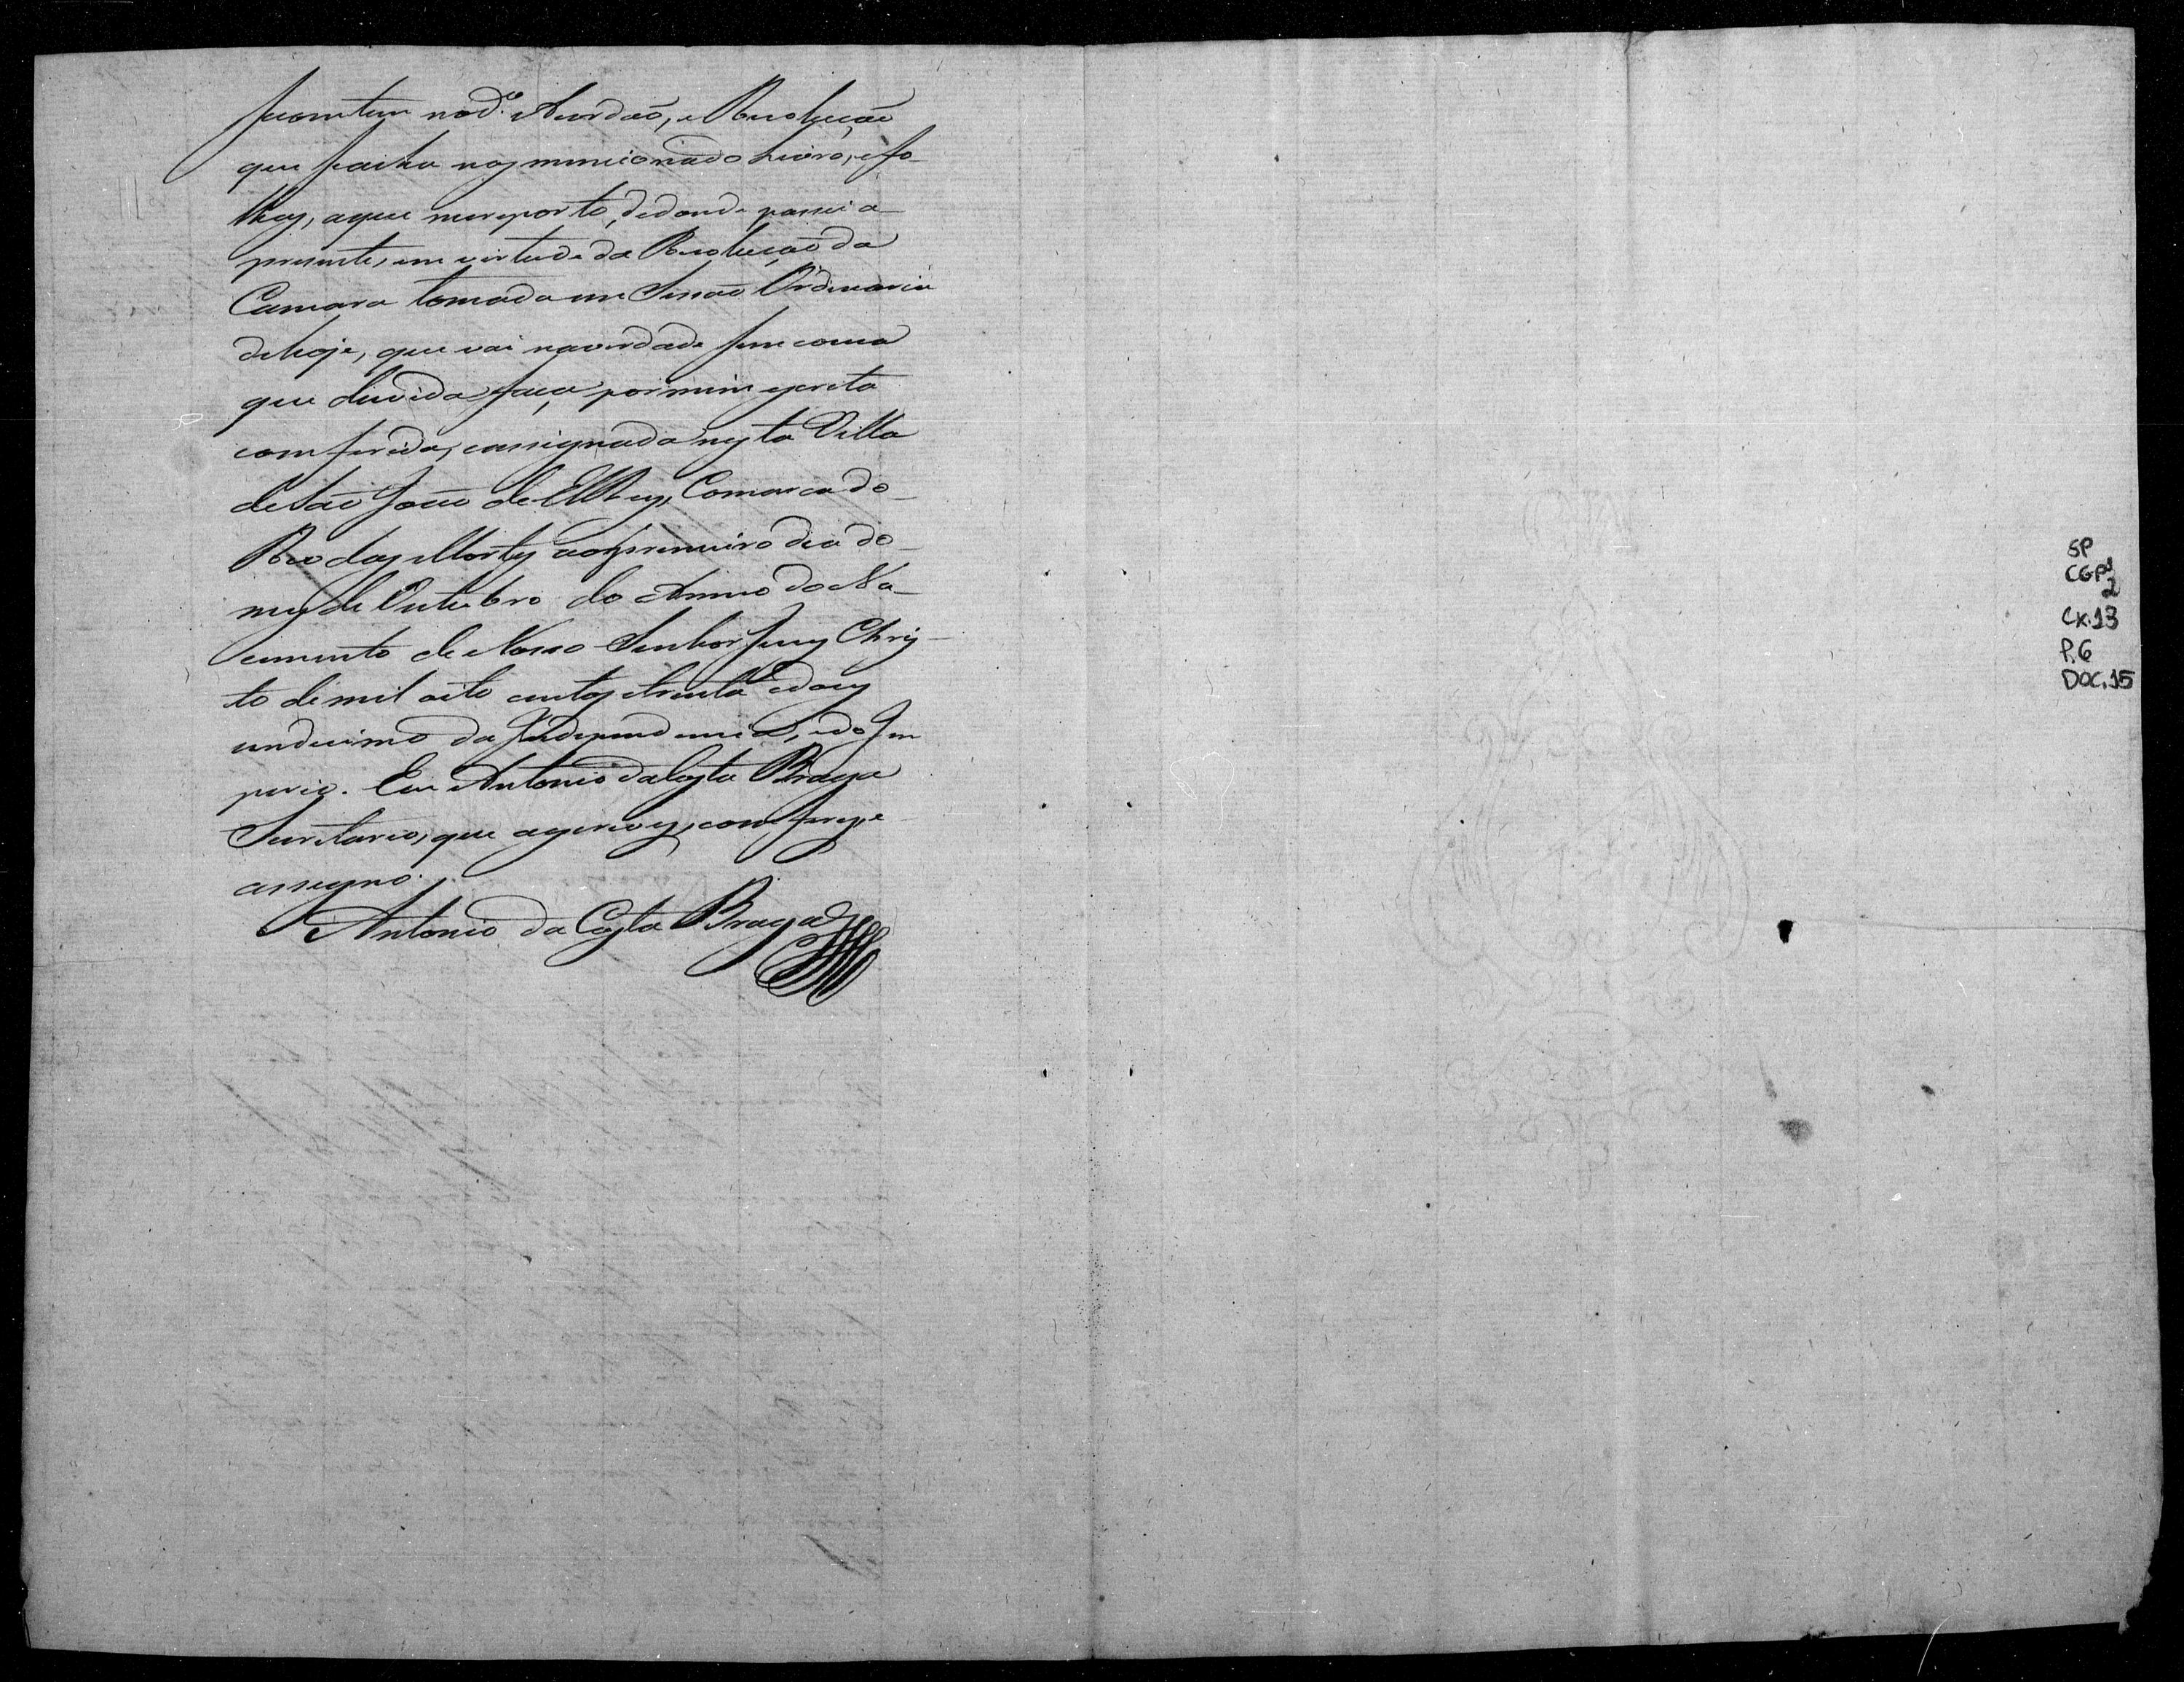 secontem nod.º Acordaõ, e Resoluçaõ
que seacha nos mencionado Livro, efo-
lhas, aque mereporto, dedonde passei a-
presente, em virtude da Resoluçaõ da
Camara tomada em Sessaõ Ordinaria
dehoje, que vai naverdade sem couza
que duvida faça pormim escrita
comferida, eassignada nesta Villa
deSaõ Joaõ de ElRey, Comarca do-
Rio das Mortes aosprimeiro dia do-
mes de Outubro do Anno do Na-
cimento de Nosso Senhor Jesus Chris-
to de mil oito centos etrinta edous
undecimo da Independencia, edo Im
perio. Eu Antonio daCosta Braga
Secretario, que aescrevy, comfery, e
assigno.
Antonio da Costa Braga
SP
CGP1
2
CX.13
P.6
DOC.15